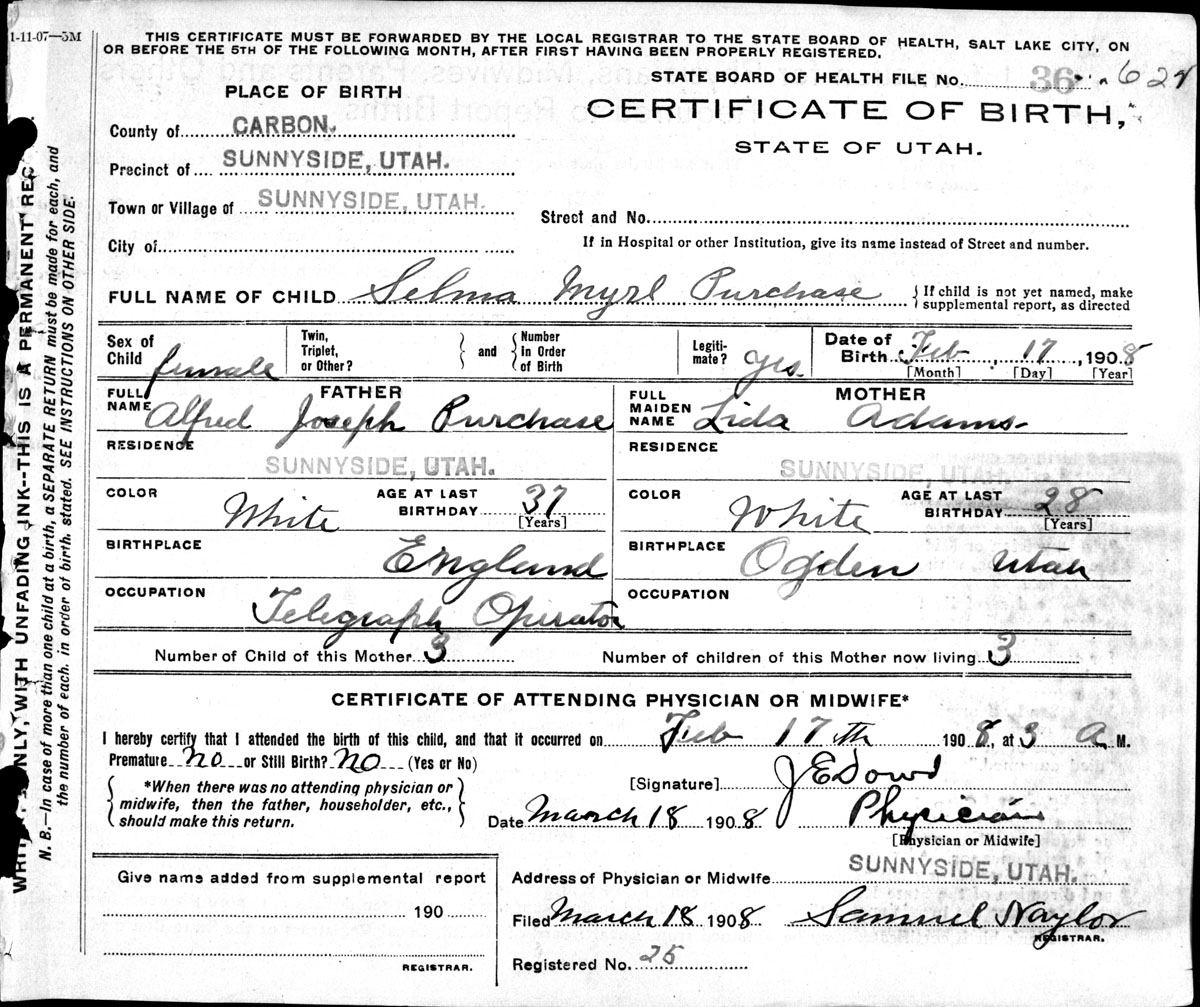 1-11-07—5M
THIS CERTIFICATE MUST BE FORWARDED BY THE LOCAL REGISTRAR TO THE STATE BOARD OF HEALTH, SALT LAKE CITY, ON
OR BEFORE THE 5TH OF THE FOLLOWING MONTH, AFTER FIRST HAVING BEEN PROPERLY REGISTERED.
STATE BOARD OF HEALTH FILE No. 36
PLACE OF BIRTH
CERTIFICATE OF BIRTH,
STATE OF UTAH.
County of CARBON.
Precinct of SUNNYSIDE, UTAH.
Town or Village of SUNNYSIDE, UTAH.
Street and No.
City of
If in Hospital or other Institution, give its name instead of Street and number.
FULL NAME OF CHILD Selma Myrl Purchase
If child is not yet named, make
supplemental report, as directed
Sex of Child female
Twin, Triplet, or Other?
and
Number In Order of Birth
Legiti-mate? yes
Date of Birth Feb, 17, 1908
[Month] [Day] [Year]
FATHER
FULL NAME Alfred Joseph Purchase
MOTHER
FULL MAIDEN NAME Lida Adams
RESIDENCE SUNNYSIDE, UTAH.
RESIDENCE SUNNYSIDE, UTAH.
COLOR White
AGE AT LAST BIRTHDAY 37
[Years]
COLOR White
AGE AT LAST BIRTHDAY 28
[Years]
BIRTHPLACE England
BIRTHPLACE Ogden Utah
OCCUPATION Telegraph Operator
OCCUPATION
Number of Child of this Mother 3
Number of children of this Mother now living 3
CERTIFICATE OF ATTENDING PHYSICIAN OR MIDWIFE*
I hereby certify that I attended the birth of this child, and that it occurred on Feb 17th 1908, at 3 A M.
Premature No or Still Birth? No (Yes or No)
*When there was no attending physician or
midwife, then the father, householder, etc.,
should make this return.
[Signature] J E Dowd
Date March 18 1908 Physician
[Physician or Midwife]
Give name added from supplemental report
190
REGISTRAR.
Address of Physician or Midwife SUNNYSIDE, UTAH.
Filed March 18 1908 Samuel Naylor
REGISTRAR.
Registered No. 25
ONLY, WITH UNFADING INK--THIS IS A PERMANENT
N. B.—In case of more than one child at a birth, a SEPARATE RETURN must be made for each, and
the number of each, in order of birth, stated. SEE INSTRUCTIONS ON OTHER SIDE.